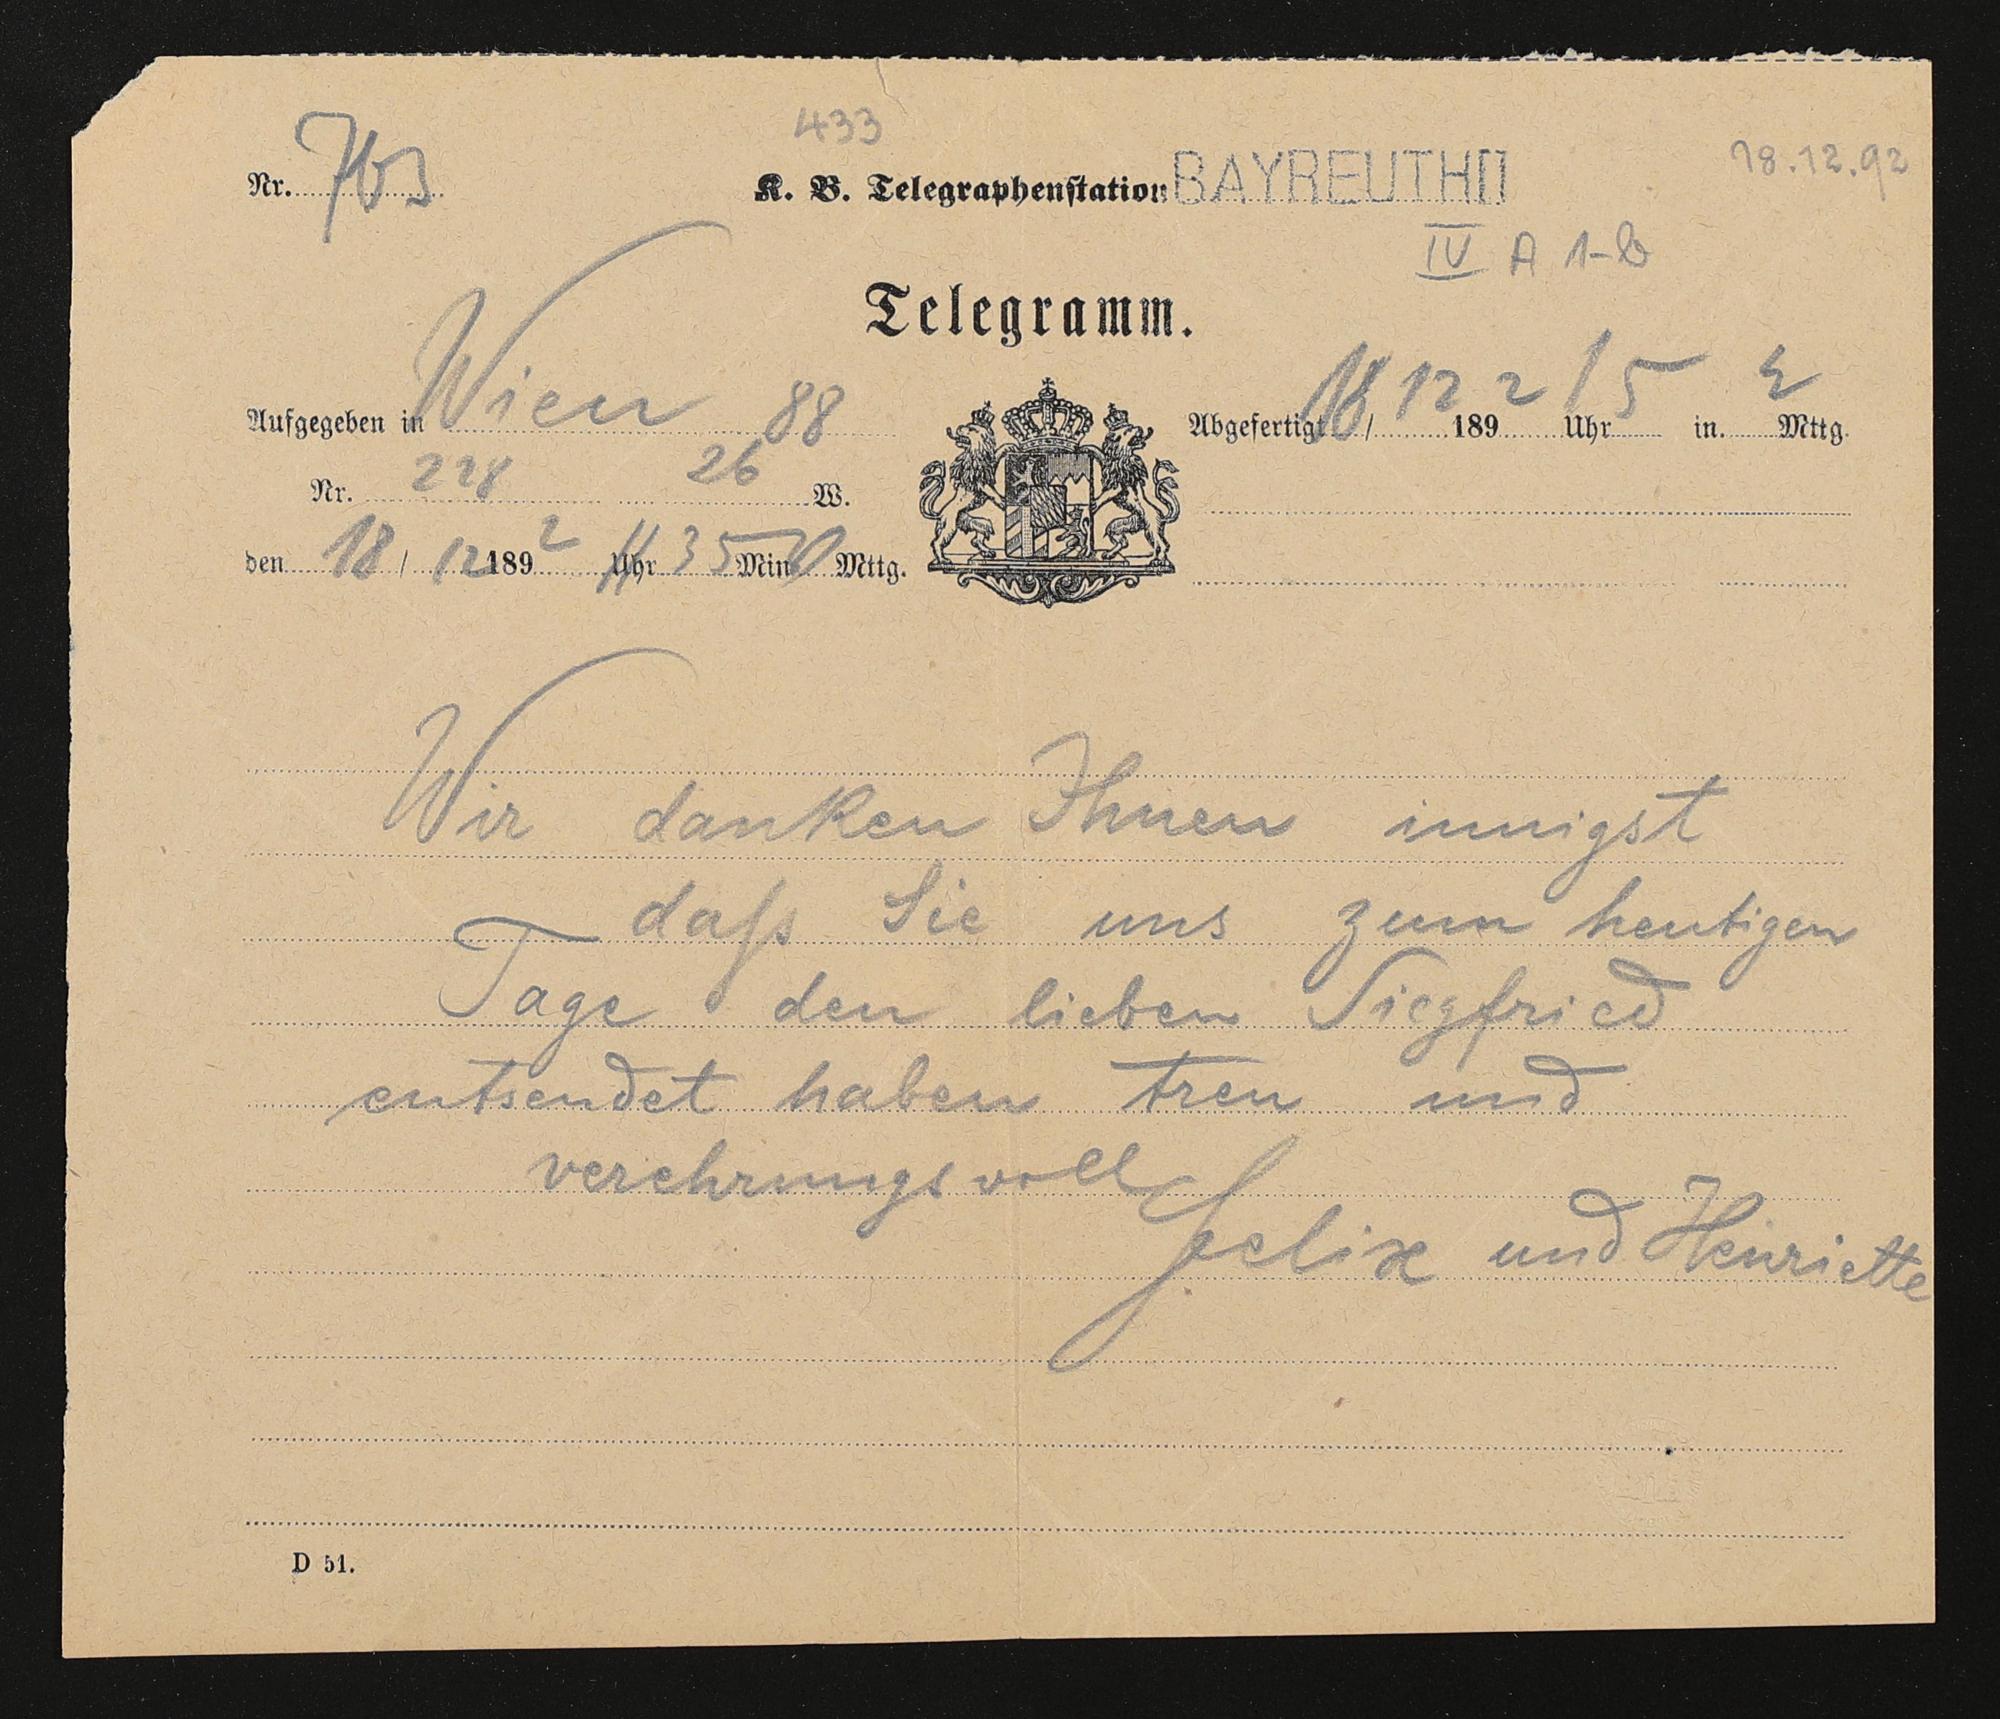 433
18.12.92
Nr. 703
K. B. Telegraphenstation BAYREUTH II
IV A 1-8
Telegramm.
Aufgegeben in Wien 88
Abgefertigt 18/12 1892 1 Uhr 5 in. Mttg.
Nr. 228 26 W.
den 18/12 1892 11 Uhr 35 Min. V Mttg.
Wir danken Ihnen innigst
daß Sie uns zum heutigen
Tage den lieben Siegfried
entsendet haben treu und
verehrungsvoll
Felix und Henriette
D 51.